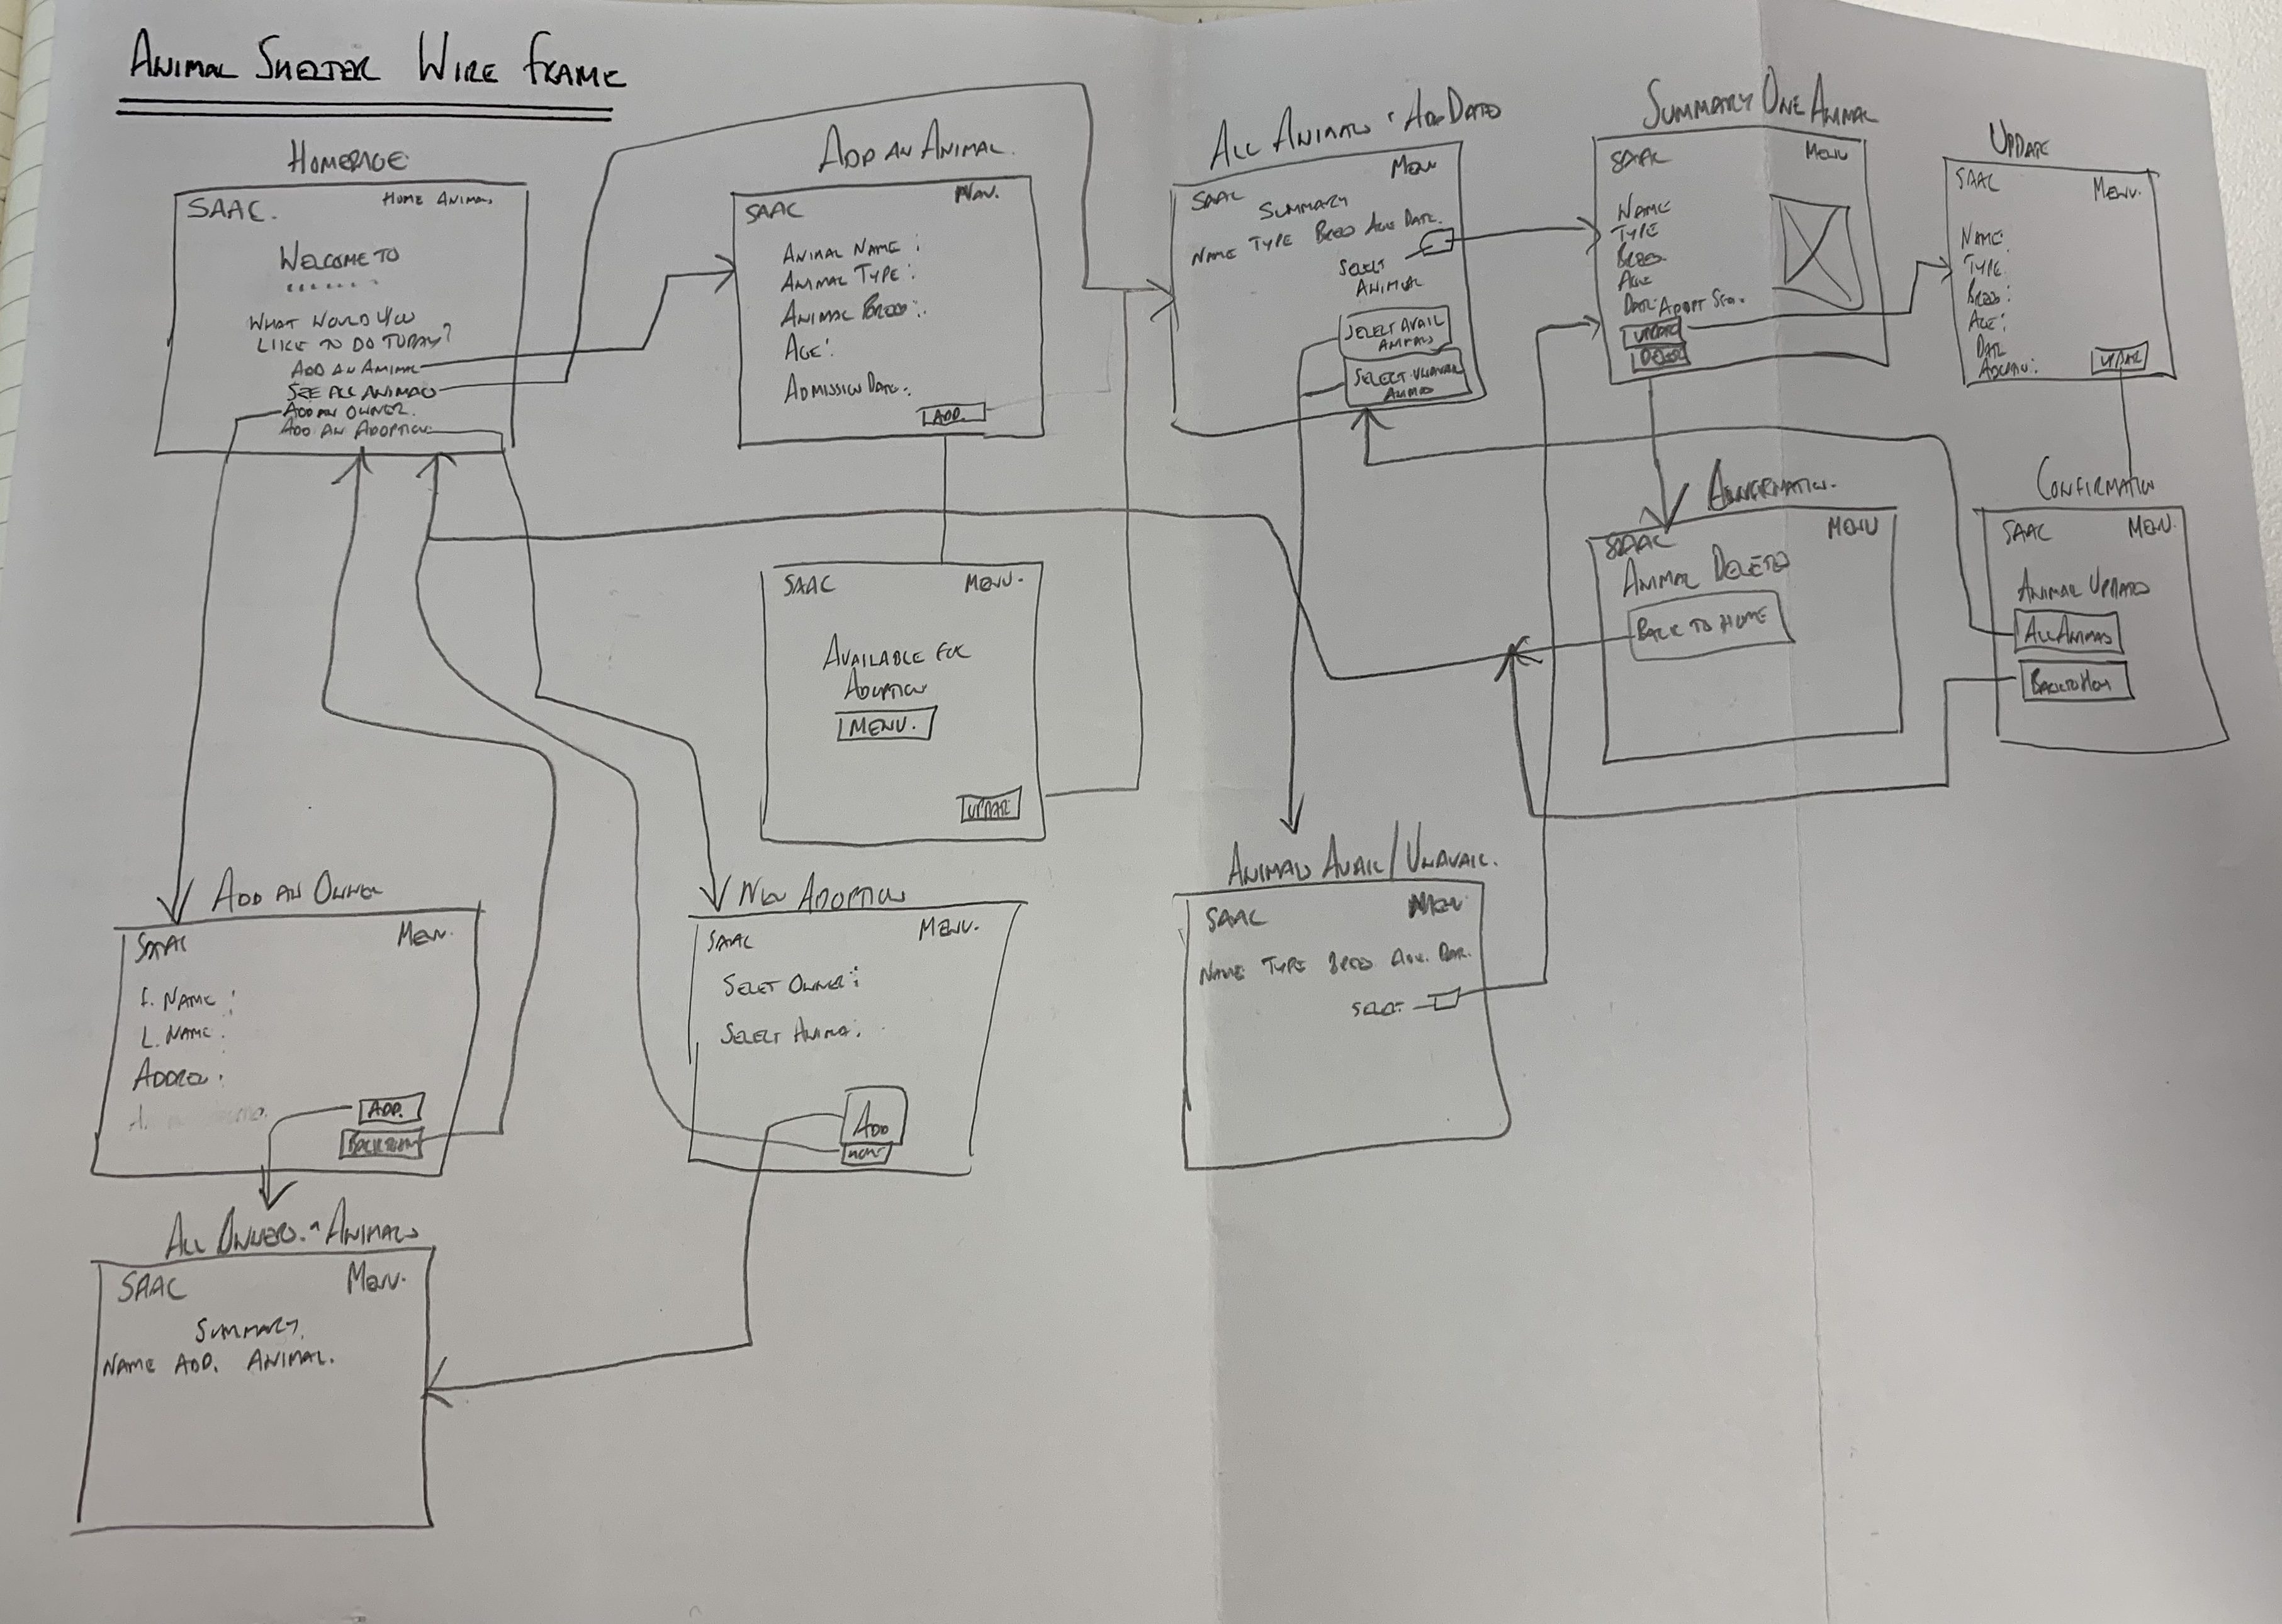 ANIMAL SHELTER WIRE FRAME
HOMEPAGE
SAAC.
HOME ANIMAL
WELCOME TO
.......
WHAT WOULD YOU
LIKE TO DO TODAY?
ADD AN ANIMAL
SEE ALL ANIMALS
ADD AN OWNER.
ADD AN ADOPTION
ADD AN ANIMAL.
SAAC
NAV.
ANIMAL NAME :
ANIMAL TYPE :
ANIMAL BREED :
AGE :
ADMISSION DATE :
ADD.
SAAC
MENU.
AVAILABLE FOR
ADOPTION
MENU.
UPDATE
ALL ANIMALS
SAAC
MENU
SUMMARY
NAME TYPE BREED AGE DATE.
SELECT
ANIMAL
SELECT AVAIL
ANIMALS
SELECT UNAVAIL
ANIMALS
SUMMARY ONE ANIMAL
SAAC
MENU
NAME
TYPE
BREED
AGE
DATE ADOPT
UPDATE
DELETE
UPDATE
SAAC
MENU.
NAME:
TYPE:
BREED:
AGE:
DATE
UPDATE
CONFIRMATION.
SAAC
MENU
ANIMAL DELETED
BACK TO HOME
CONFIRMATION
SAAC
MENU.
ANIMAL UPDATED
ALL ANIMALS
BACK TO HOM
ADD AN OWNER
SAAC
MENU.
F. NAME :
L. NAME :
ADDRESS :
ADD.
BACK TO HOM
NEW ADOPTION
SAAC
MENU.
SELECT OWNER :
SELECT ANIMAL :
ADD
HOME
ANIMALS AVAIL / UNAVAIL.
SAAC
MENU
NAME TYPE BREED AGE. DATE.
SELECT
ALL OWNERS + ANIMALS
SAAC
MENU.
SUMMARY.
NAME ADD. ANIMAL.